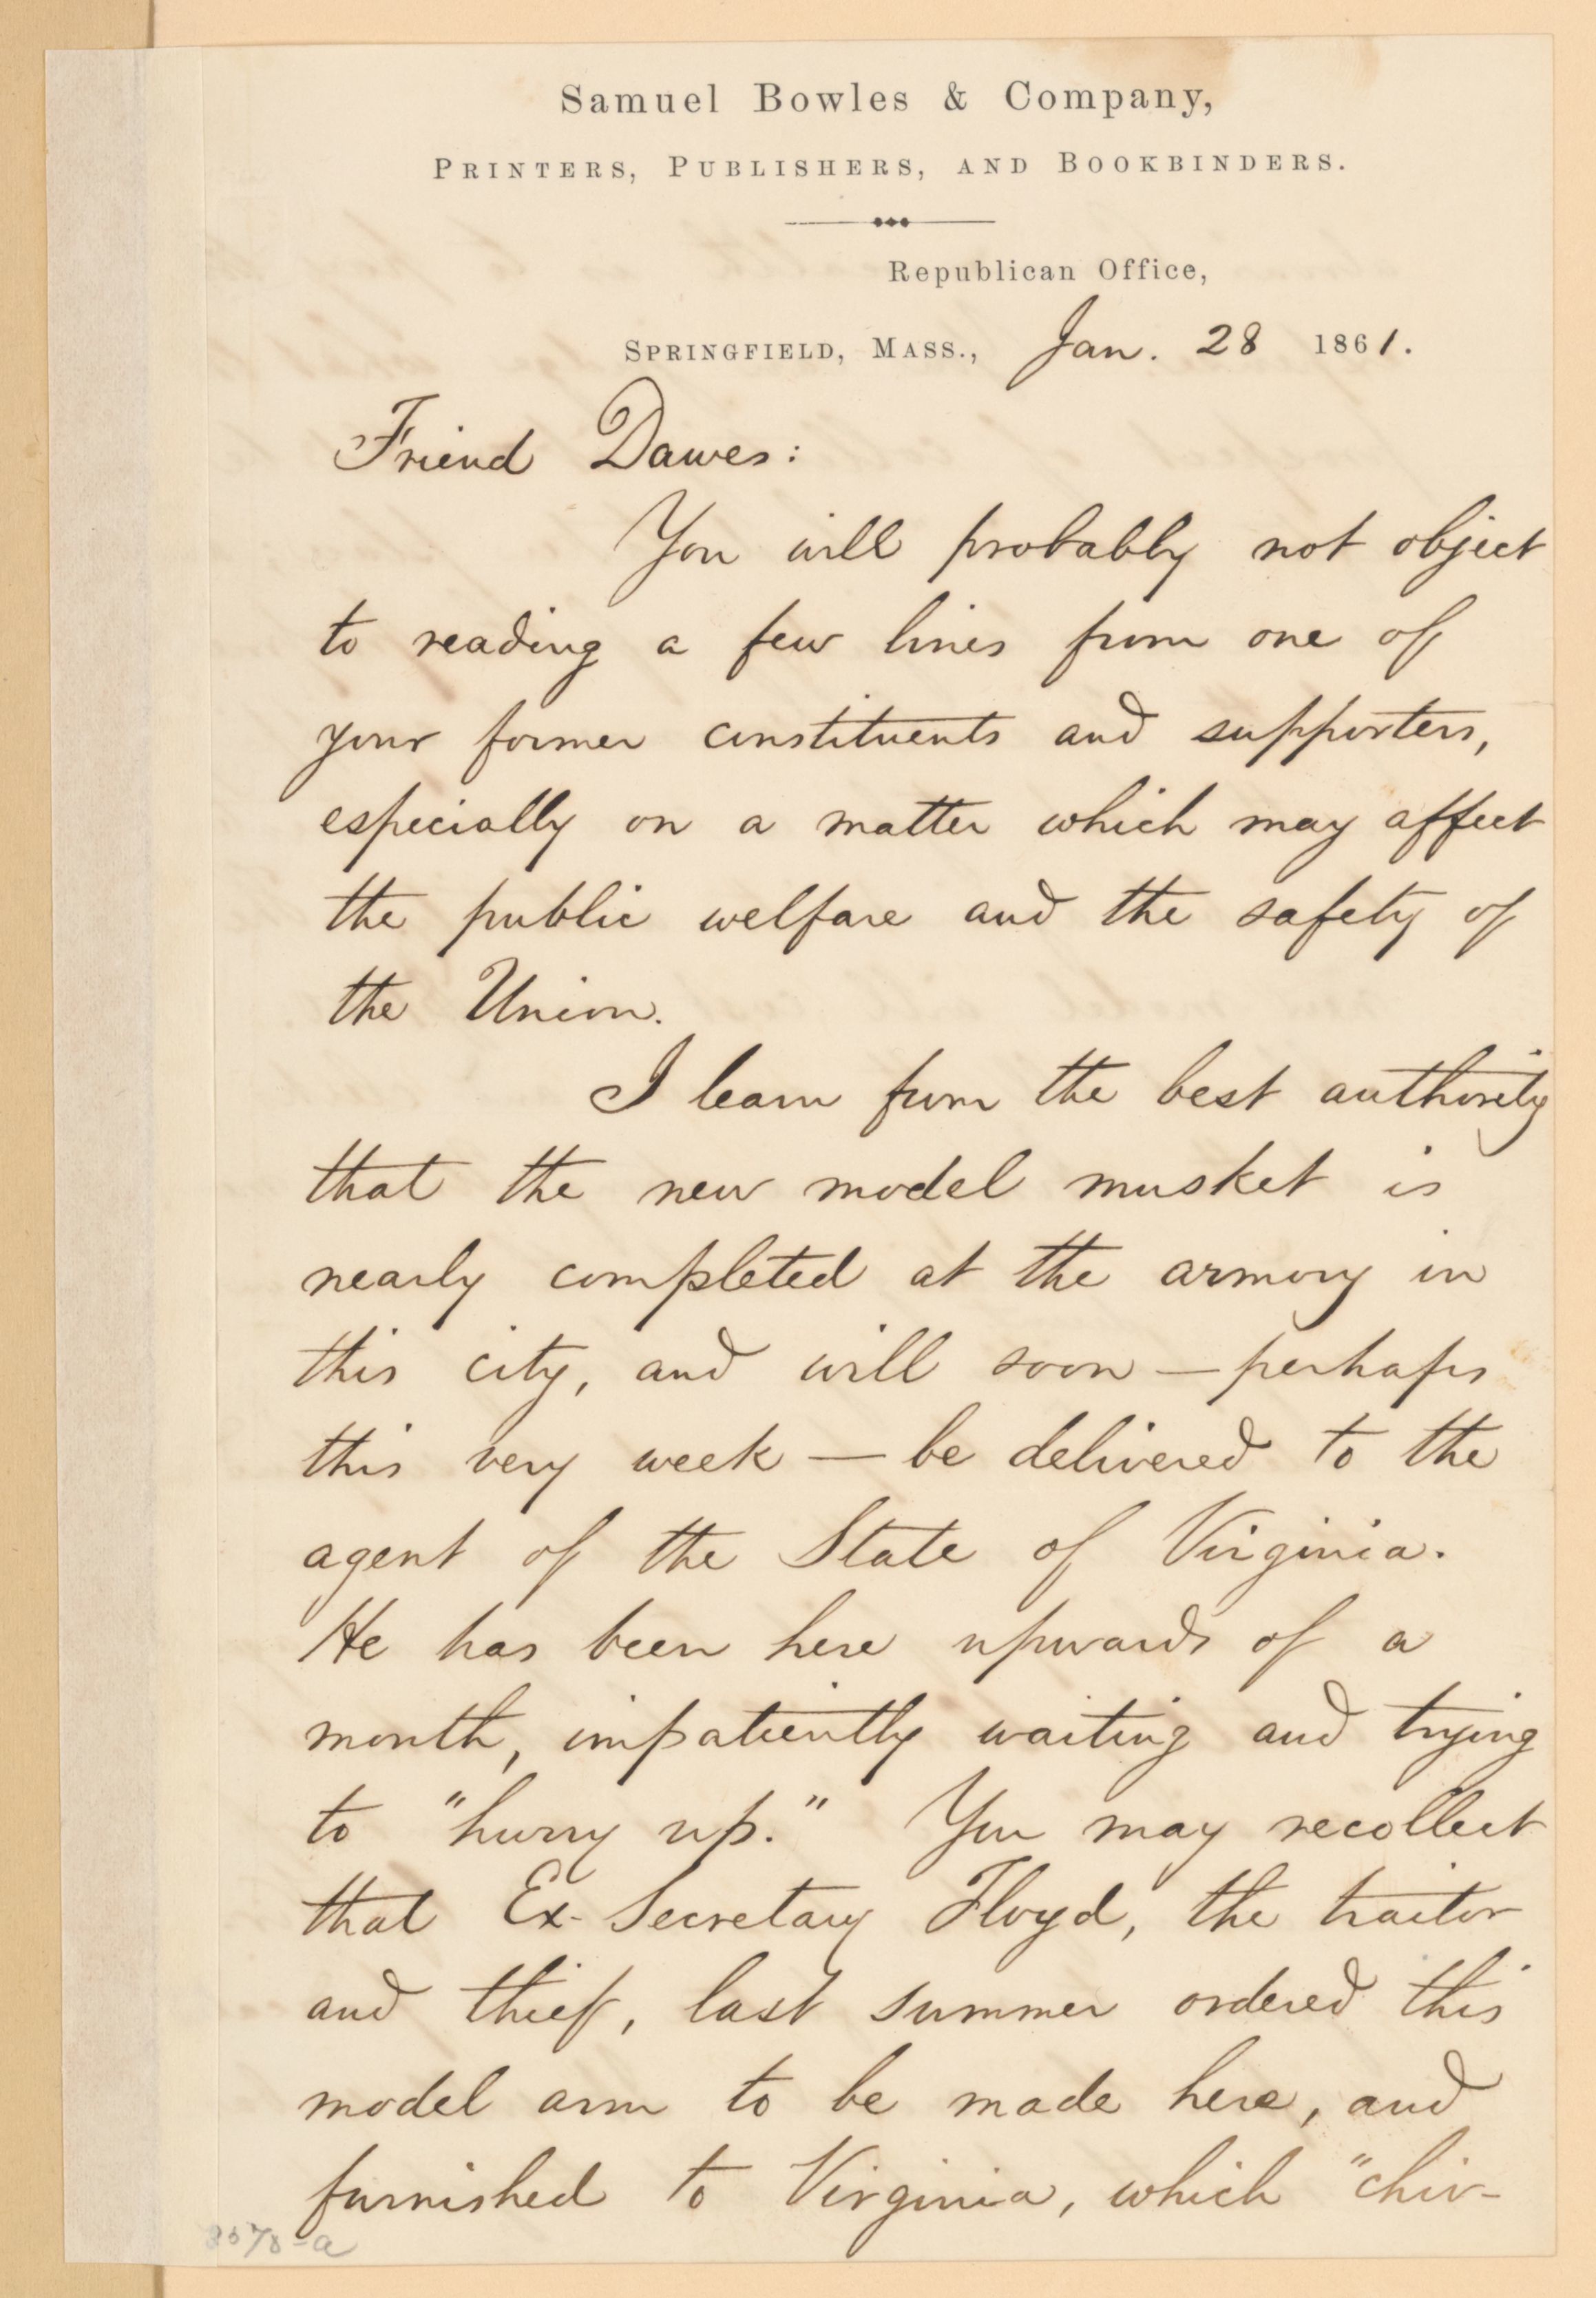 Samuel Bowles & Company,
Printers, Publishers, and Bookbinders.
Republican Office,
Springfield, Mass., Jan. 28 1861.
Friend Dawes:
You will probably not object
to reading a few lines from one of
your former constituents and supporters,
especially on a matter which may affect
the public welfare and the safety of
the Union.
I learn from the best authority
that the new model musket is
nearly completed at the armory in
this city, and will soon — perhaps
this very week — be delivered to the
agent of the State of Virginia.
He has been here upwards of a
month, impatiently waiting and trying
to "hurry up." You may recollect
that Ex-Secretary Floyd, the traitor
and thief, last summer ordered this
model arm to be made here, and
furnished to Virginia, which "chiv-
8578-a